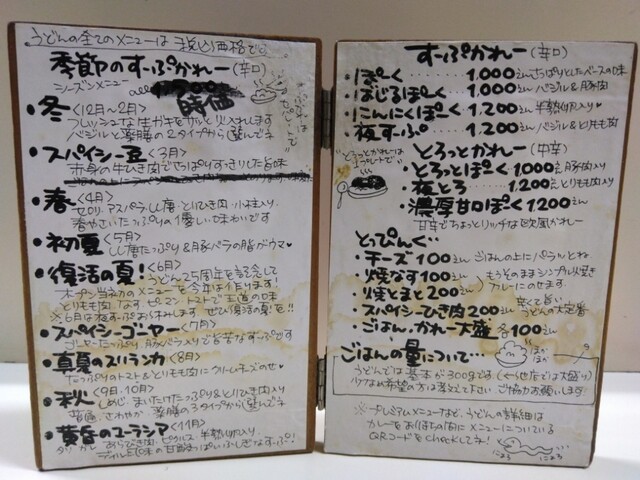 うどんの全てのメニューは税込価格です。
季節のすーぷかれー(辛口)
シーズンメニュー
all
時価
・冬〈12月〜2月〉
フレッシュな生ガキをサッと火入れします
バジルと薬膳の2タイプから選んでネ
・スパイシー豆〈3月〉
赤身の牛ひき肉でさっぱりすっきりした旨味
・春〈4月〉
アスパラ しし唐・とりひき肉・小柱入り。
春やさいたっぷりの優しい味わいです
・初夏〈5月〉
しし唐たっぷり&豚バラの脂がウマ♥
・復活の夏!〈6月〉
うどん25周年を記念して
オープン当初のメニューを今年は作ります!
とりもも肉 なす ピーマン トマトで王道の味
※6月は夜すーぷお休みします ぜひ復活の夏を!!
・スパイシーゴーヤー〈7月〉
ゴーヤーたっぷり 豚バラ入りで旨苦なすーぷです
・真夏のスリランカ〈8月〉
たっぷりのトマト&とりもも肉にクリームチーズのせ♥
・秋〈9月、10月〉
しめじ・まいたけたっぷり&とりひき肉入り
普通 さわやか 薬膳の3タイプから選んでネ
・黄昏のユーラシア〈11月〉
あらびき肉・ピクルス 半熟卵入り。
ディル&ビーツの甘酸っぱいふしぎなすーぷ!
すーぷかれー(辛口)
・ぽーく ・・・・ 1,000えん さっぱりとしたベースの味
・ばじるぽーく 1,000えん バジル&豚肉
・にんにくぽーく 1,200えん 半熟卵入り♥
・夜すーぷ ・・・ 1,200えん バジル&とりもも肉
とろっとかれーは
プレートで
とろっとかれー(中辛)
・とろっとぽーく 1,000えん 豚肉入り
・夜とろ ・・・・ 1,200えん とりもも肉入り
・濃厚甘口ぽーく 1200えん
甘辛でちょっとリッチな欧風かれー
とっぴんぐ・・
・チーズ 100えん ごはんの上にパラッとネ
・焼なす 100えん
・焼とまと 200えん
もうそのまんまシンプル火焼き
カレーにのせます
・スパイシーひき肉 200えん 辛くて旨い うどんの大定番
・ごはん、かれー大盛 各100えん
ごはんの量について…
ほかほか
うどんでは基本が300gでは(←他店では大盛り)
少なめ希望の方は教えて下さい ご協力お願いします
※プレミアムメニューなど、うどんの詳細は
カレーをお待ちの間に メニューについている
QRコードをCheckしてネ!
にょろ にょろ